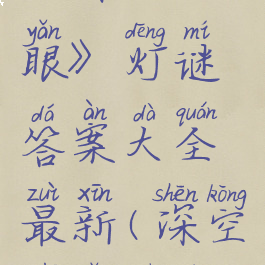 yǎn dēng mí
眼》灯谜
dá àn dà quán
答案大全
zuì xīn shēn kōng
最新(深空